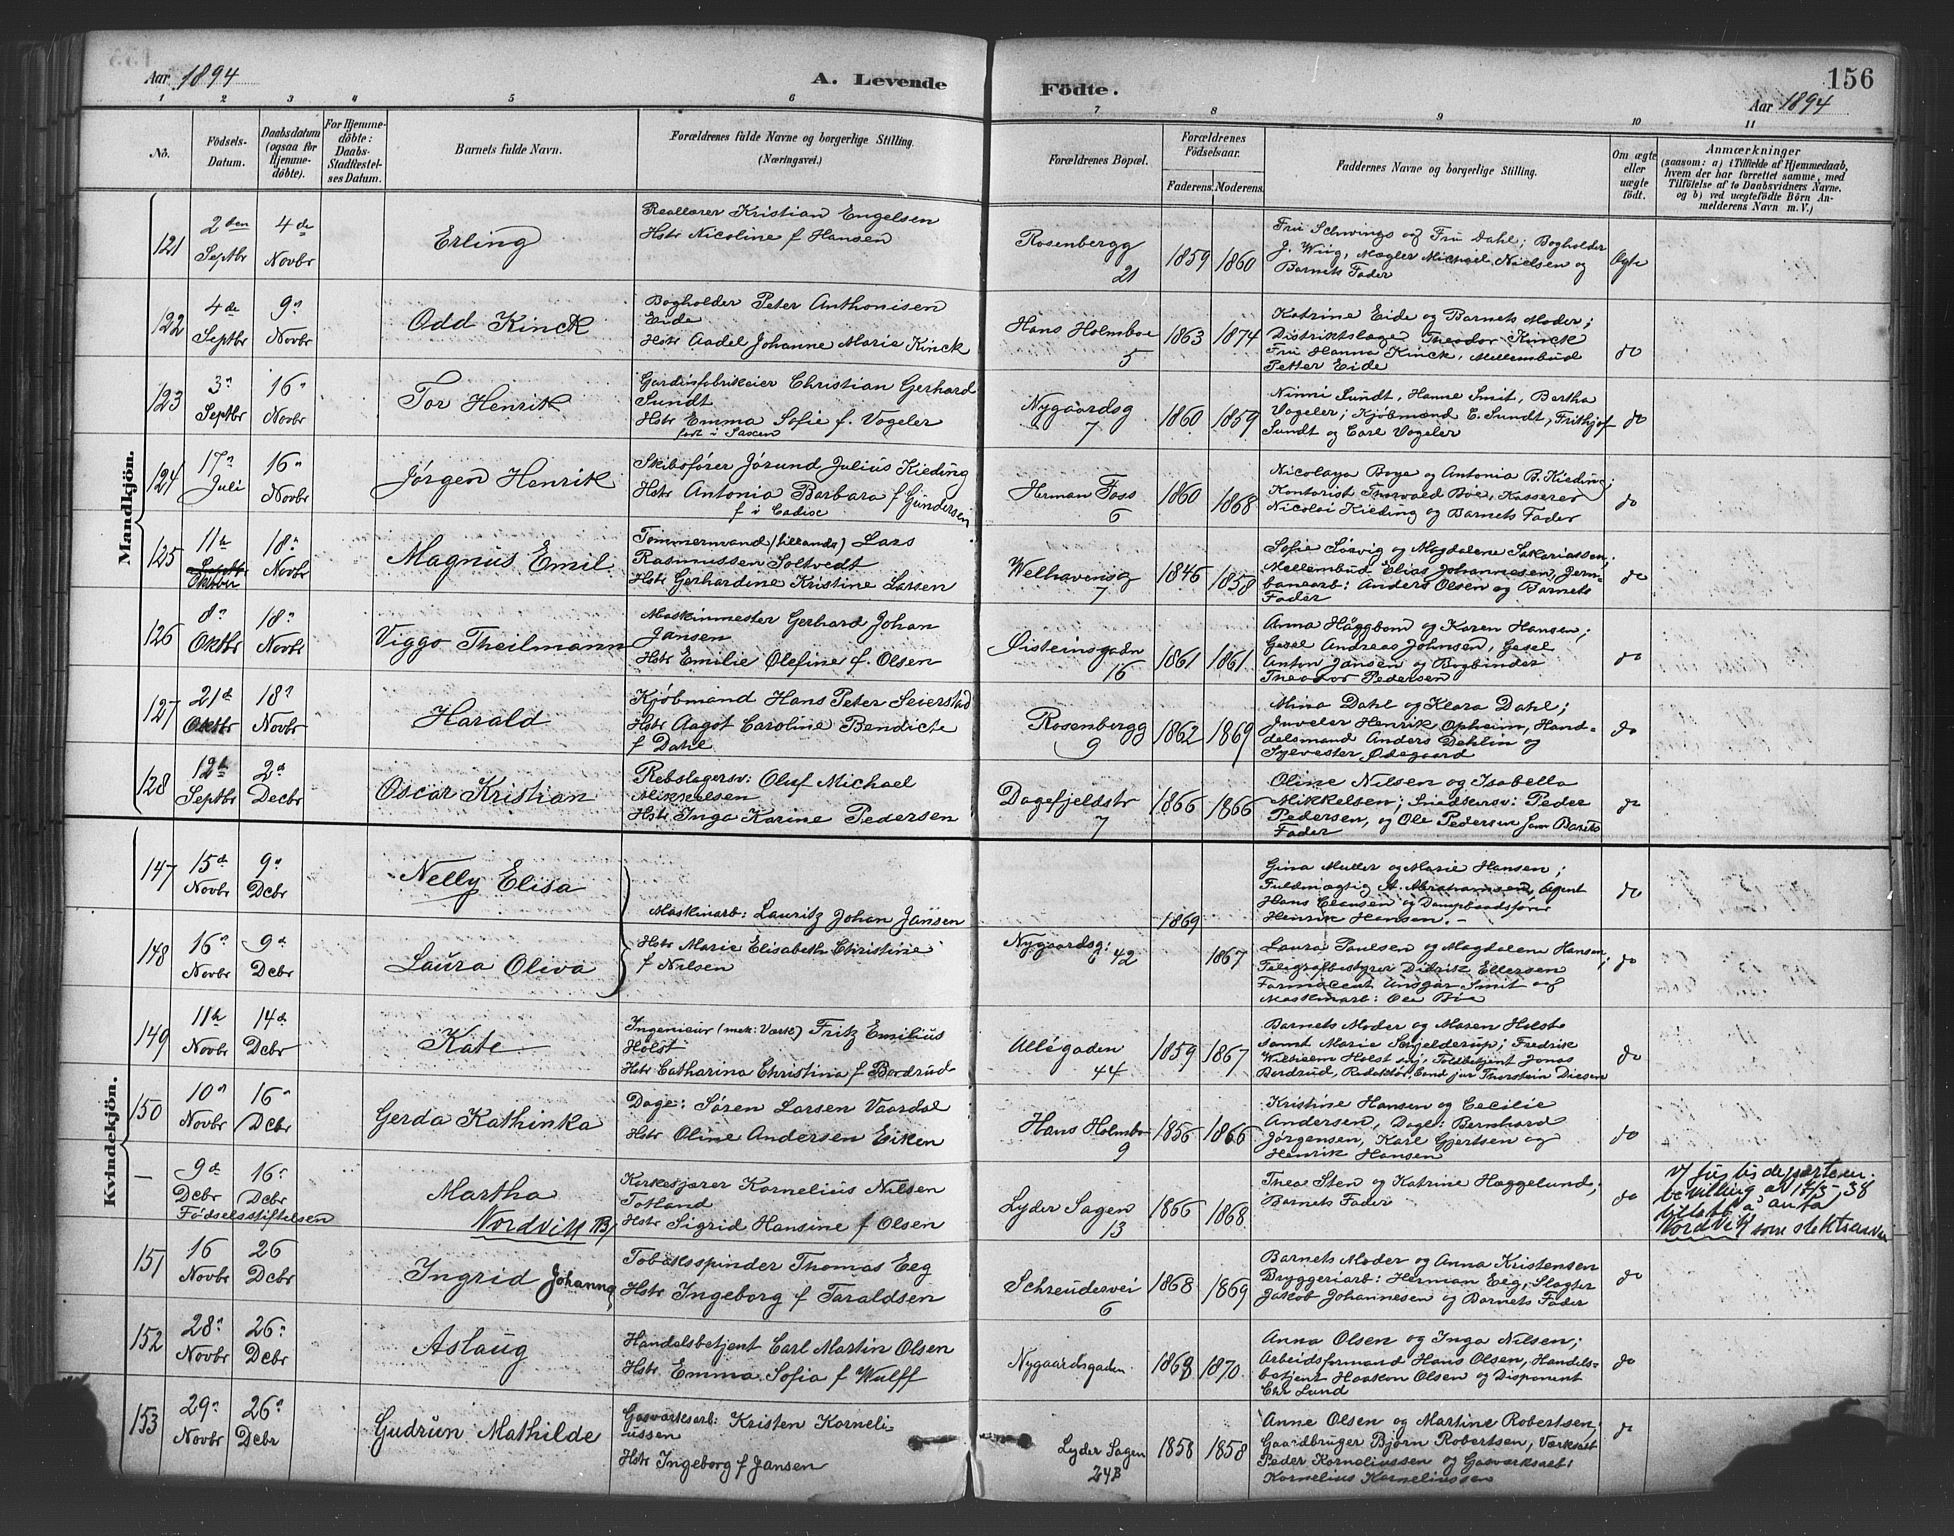 Aar 1894
A. Levende
Födte.
156
Aar 1894
1 2 3 4 5 6 7 8 9 10 11
No.
Födsels-
Datum.
Daabsdatum
(ogsaa for
Hjemme-
döbte).
For Hjemme-
döbte:
Daabs-
Stadfæstel-
ses Datum.
Barnets fulde Navn.
Forældrenes fulde Navne og borgerlige Stilling.
(Næringsvei.)
Forældrenes Bopæl.
Forældrenes
Födselsaar.
Faderens. Moderens.
Faddernes Navne og borgerlige Stilling.
Om ægte
eller
uægte
födt.
Anmærkninger
(saasom: a) i Tilfælde af Hjemmedaab,
hvem der har forrettet samme, med
Tilföielse af to Daabsvidners Navne,
og b) ved uægtefödte Börn An-
melderens Navn m. V.)
Mandkjön.
121
2den
Septbr
4de
Novbr
Erling
Reallærer Kristian Engelsen
Hstr Nicoline f Hansen
Rosenbergg
21
1859 1860
Fru Schwings og Fru Dahl; Bogholder
J. Wiig, Mægler Michael Nielsen og
Barnets Fader
Ægte
122
4de
Septbr
9n
Novbr
Odd Kinck
Bogholder Peter Anthonisen
Eide
Hstr Aadel Johanne Marie Kinck
Hans Holmboe
5
1863 1874
Katrine Eide og Barnets Moder;
Distriktslæge Theodor Kinck
Fru Hanna Kinck, Mellembud
Petter Eide
do
123
3n
Septbr
16n
Novbr
Tor Henrik
Gardinfabrikeier Christian Gerhard
Sundt
Hstr Emma Sofie f. Vogeler
født i Saxen
Nygaardsg
7
1860 1859
Ninni Sundt, Hanne Smit, Bertha
Vogeler; Kjöbmænd E. Sundt, Frithjof
Sundt og Carl Vogeler
do
124
17n
Juli
16n
Novbr
Jørgen Henrik
Skibsfører Jörund Julius Kieding
Hstr Antonia Barbara f Gundersen
f i Cadix
Herman Foss
6
1860 1868
Nicolaya Boye og Antonia B. Kieding;
Kontorist Thorvald Böe, Kasserer
Nicolai Kieding og Barnets Fader
do
125
11te
Oktober
18n
Novbr
Magnus Emil
Tømmermand (illands) Lars
Rasmussen Soltvedt
Hstr Gerhardine Kristine Larsen
Welhavensg
7
1846 1858
Sofie Sörvig og Magdalene Sakariassen;
Mellembud Elias Johannesen, Jern-
banearb: Anders Olsen og Barnets
Fader
do
126
8n
Oktbr
18n
Novbr
Viggo Theilmann
Maskinmester Gerhard Johan
Jansen
Hstr Emilie Olefine f. Olsen
Øisteinsgaden
16
1861 1861
Anna Häggbom og Karen Hansen;
Gesel Andreas Johnsen, Gesel
Anton Jansen og Bogbinder
Theodor Pedersen
do
127
21de
Oktbr
18n
Novbr
Harald
Kjöbmand Hans Peter Seierstad
Hstr Aagot Caroline Bendicte
f Dahl
Rosenbergg
9
1862 1869
Mina Dahl og Klara Dahl;
Juveler Henrik Opheim, Hand-
delsmand Anders Dehlin og
Sylvester Ødegaard
do
128
12te
Septbr
2d
Decbr
Oscar Kristian
Rebslagersv: Oluf Michael
Mikkelsen
Hstr Inga Karine Pedersen
Dagefjeldstr
7
1866 1866
Oline Nilsen og Isabella
Mikkelsen; Snedkersv: Peder
Pedersen, og Ole Pedersen
Fader
do
Kvindekjön.
147
15de
Novbr
9n
Dcbr
Nelly Elisa
Gina Muller og Marie Hansen;
Fuldmægtig A. Abrahamsen, Agent
Hans Clausen og Dampbaadsfører
Henrik Hansen. -
do
Maskinarb: Lauritz Johan Jansen
Hstr Marie Elisabeth Christine
f Nilsen
Nygaardsg: 42
1869 1867
148
16n
Novbr
9n
Dcbr
Laura Oliva
Laura Paulsen og Magdalene Hansen;
Telegrafbestyrer Didrik Ellersen
Farmacent Ansgar Smit og
Maskinarb: Ole Böe
do
149
11te
Novbr
14de
Dcbr
Kate
Ingeniør (mek: Værk) Fritz Emilius
Holst
Hstr Catharina Christina f Bordrud
Allégaden
44
1859 1867
Barnets Moder og Maren Holst
samt Marie Schjelderup; Fredrik
Wilhelm Holst sej, Toldbetjent Jonas
Bordrud, Redaktör, Cand jur Thorstein Diesen
do
150
10n
Novbr
16n
Dcbr
Gerda Kathinka
Dagl: Sören Larsen Vaardal
Hstr Oline Andersen Eiken
Hans Holmbo
9
1856 1866
Kristine Hansen og Cecilie
Andersen, Dagl: Bernhard
Jørgensen, Karl Gjertsen og
Henrik Hansen
do
-
9de
Dcbr
16n
Dcbr
Födselsstiftelsen
Martha
Nordvik
Kirkesjarer Kornelius Nilsen
Totland
Hstr Sigrid Hansine f Olsen
Lyder Sagen
13
1866 1868
Thea Sten og Katrine Hæggelund;
Barnets Fader
do
Nordvik som slektsnavn
151
16
Novbr
26
Dcbr
Ingrid Johanna
Tobaksspinder Thomas Eeg
Hstr Ingeborg f Taraldsen
Schreudersvei
6
1868 1869
Barnets Moder og Anna Kristensen
Bryggeriarb: Herman Eeg, Slagter
Jakob Johannesen og Barnets Fader
do
152
28n
Novbr
26n
Dcbr
Aslaug
Handelsbetjent Carl Martin Olsen
Hstr Emma Sofia f Wulff
Nygaardsgaden
1868 1870
Anna Olsen og Inga Nilsen;
Arbeidsformand Hans Olsen, Handels-
betjent Haakon Olsen og Disponent
Chr Lund
do
153
29n
Novbr
26n
Dcbr
Gudrun Mathilde
Gasværksarb: Kristen Korneli-
ussen
Hstr Ingeborg f Jansen
Lyder Sagen
24B
1858 1858
Anne Olsen og Martine Robertsen;
Gaardbruger Björn Robertsen, Værksarb
Peder Korneliussen og Gasværksarb:
Kornelius Korneliussen
do